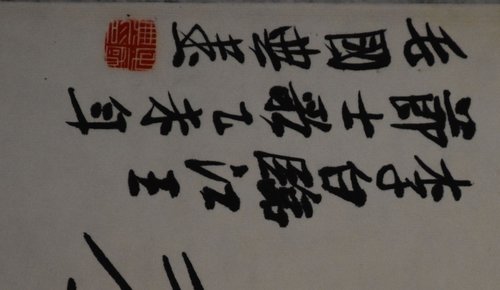 李白臨江王
節士歌乙未年
毛國典書